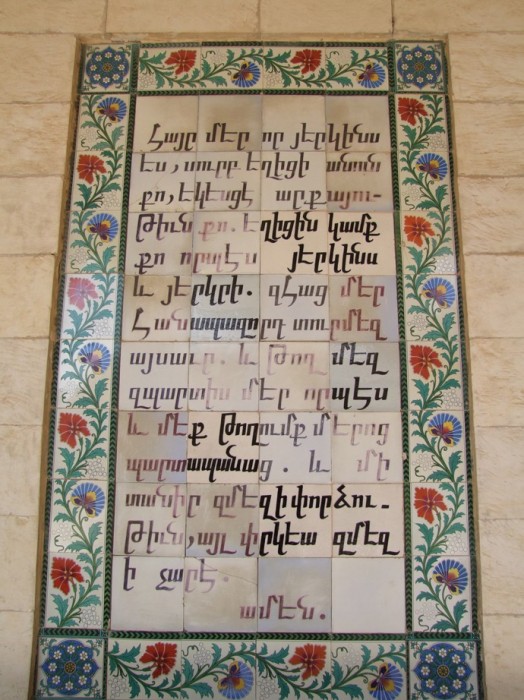 Հայր մեր որ յերկինս
ես, սուրբ եղիցի անուն
քո, եկեսցէ արքայու-
թիւն քո. եղիցին կամք
քո որպէս յերկինս
և յերկրի. զՀաց մեր
Հանապազորդ տուր մեզ
այսաւր. և թող մեզ
զպարտիս մեր որպէս
և մէք թողումք մերոց
պարտապանաց. և մի
տանիր զմեզ ի փորձու-
թիւն, այլ փրկեա զմեզ
ի չարէ.
ամէն.